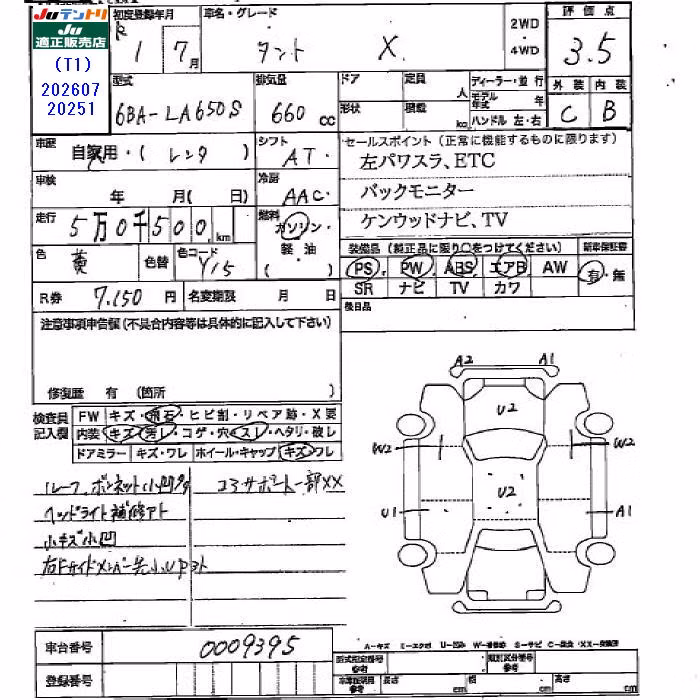 JUテントリ
JU
適正販売店
(T1)
202607
20251
初度登録年月
R
1 7月
車名・グレード
タント X
2WD
・
4WD
評価点
3.5
型式
6BA-LA650S
排気量
660 cc
ドア
定員
人
形状
積載
kg
ディーラー・並行
モデル年式 年
ハンドル 左・右
外装 内装
C B
車歴
自家用・( レンタ )
シフト
AT・
セールスポイント(正常に機能するものに限ります)
左パワスラ、ETC
バックモニター
ケンウッドナビ、TV
車検
年 月( 日)
冷房
AAC・
走行
5万0千500 km
燃料
ガソリン・
軽・油
( )
色
黄
色替
色コード
Y15
装備品(純正品に限り○をつけてください)
新車保証書
PS PW ABS エアB AW
有・無
SR ナビ TV カワ
R券 7.150 円
名変期限 月 日
後日品
注意事項申告欄(不具合内容等は具体的に記入して下さい)
修復歴 有 (箇所 )
検査員
記入欄
FW キズ・飛石・ヒビ割・リペア跡・X要
内装 キズ・汚レ・コゲ・穴・スレ・ヘタリ・破レ
ドアミラー キズ・ワレ ホイール・キャップ キズ・ワレ
ルーフ、ボンネット小凹
コアサポート一部XX
ヘッドライト補修アト
小キズ小凹
右Fサイドメンバー先小UPアト
A2 A1
U2
W2 W2
U2
U1 A1
車台番号 0009395
登録番号
A-キズ U-凹み S-サビ XX-交換済
型式指定番号
参考
類別区分番号
参考
長さ cm
幅 cm
高さ cm